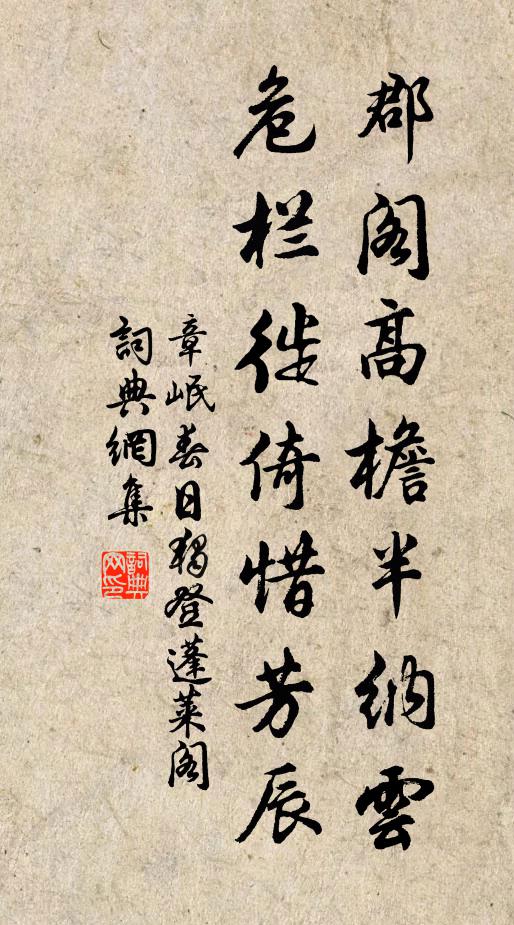 郡阁高檐半纳雲
危栏徙倚惜芳辰
章岷春日独登蓬莱阁
詞典網集
詞典网印